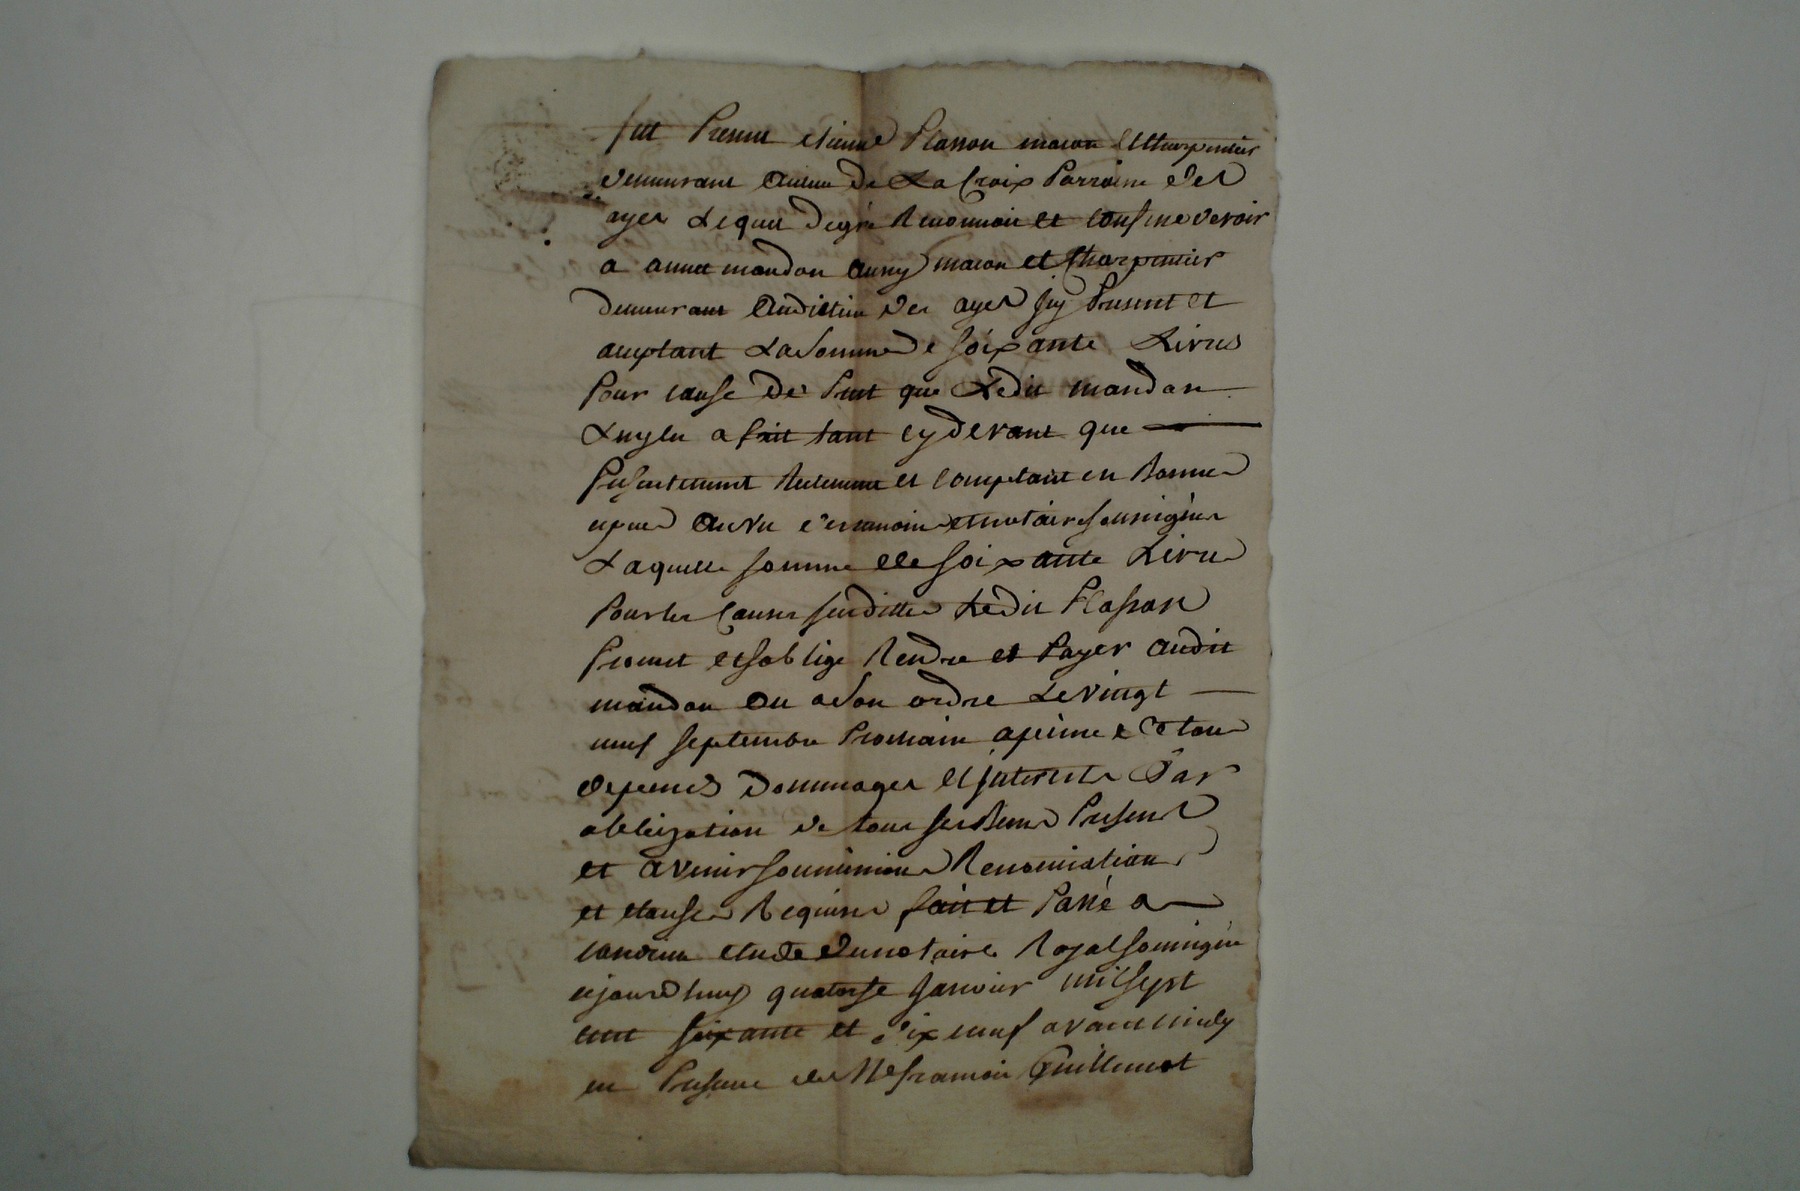 fut Present etienne Plasson macon et Charpentier
demeurant au lieu de La Croix Parroisse des
ayes Lequel degré Reconnoit et confesse devoir
a annet mandon aussy macon et Charpentier
demeurant audit lieu des ayes Jcy Present et
aceptant La Somme de soixante Livres
Pour cause de Pret que Ledit mandon
Luy en a fait tant cy devant que
Presentement Reelement et comptant en Bonnes
espces au vu des temoins et notaire soussignes
Laquelle somme de soixante Livres
Pour les Causes susdittes Ledit Plasson
Promet et soblige Rendre et Payer audit
mandon ou a Son ordre Le vingt
neuf septembre Prochain a peine de tous
depens Dommages et jnterests Par
obligation de tous ses Biens Presens
et avenir soumissions Renonciations
et clauses Requises fait et Passé a
etude du notaire Royal soussigné
cejourdhuy quatorse Janvier mil sept
cent soixante et dix neuf avant midy
en Presence de Me francois Guillemot